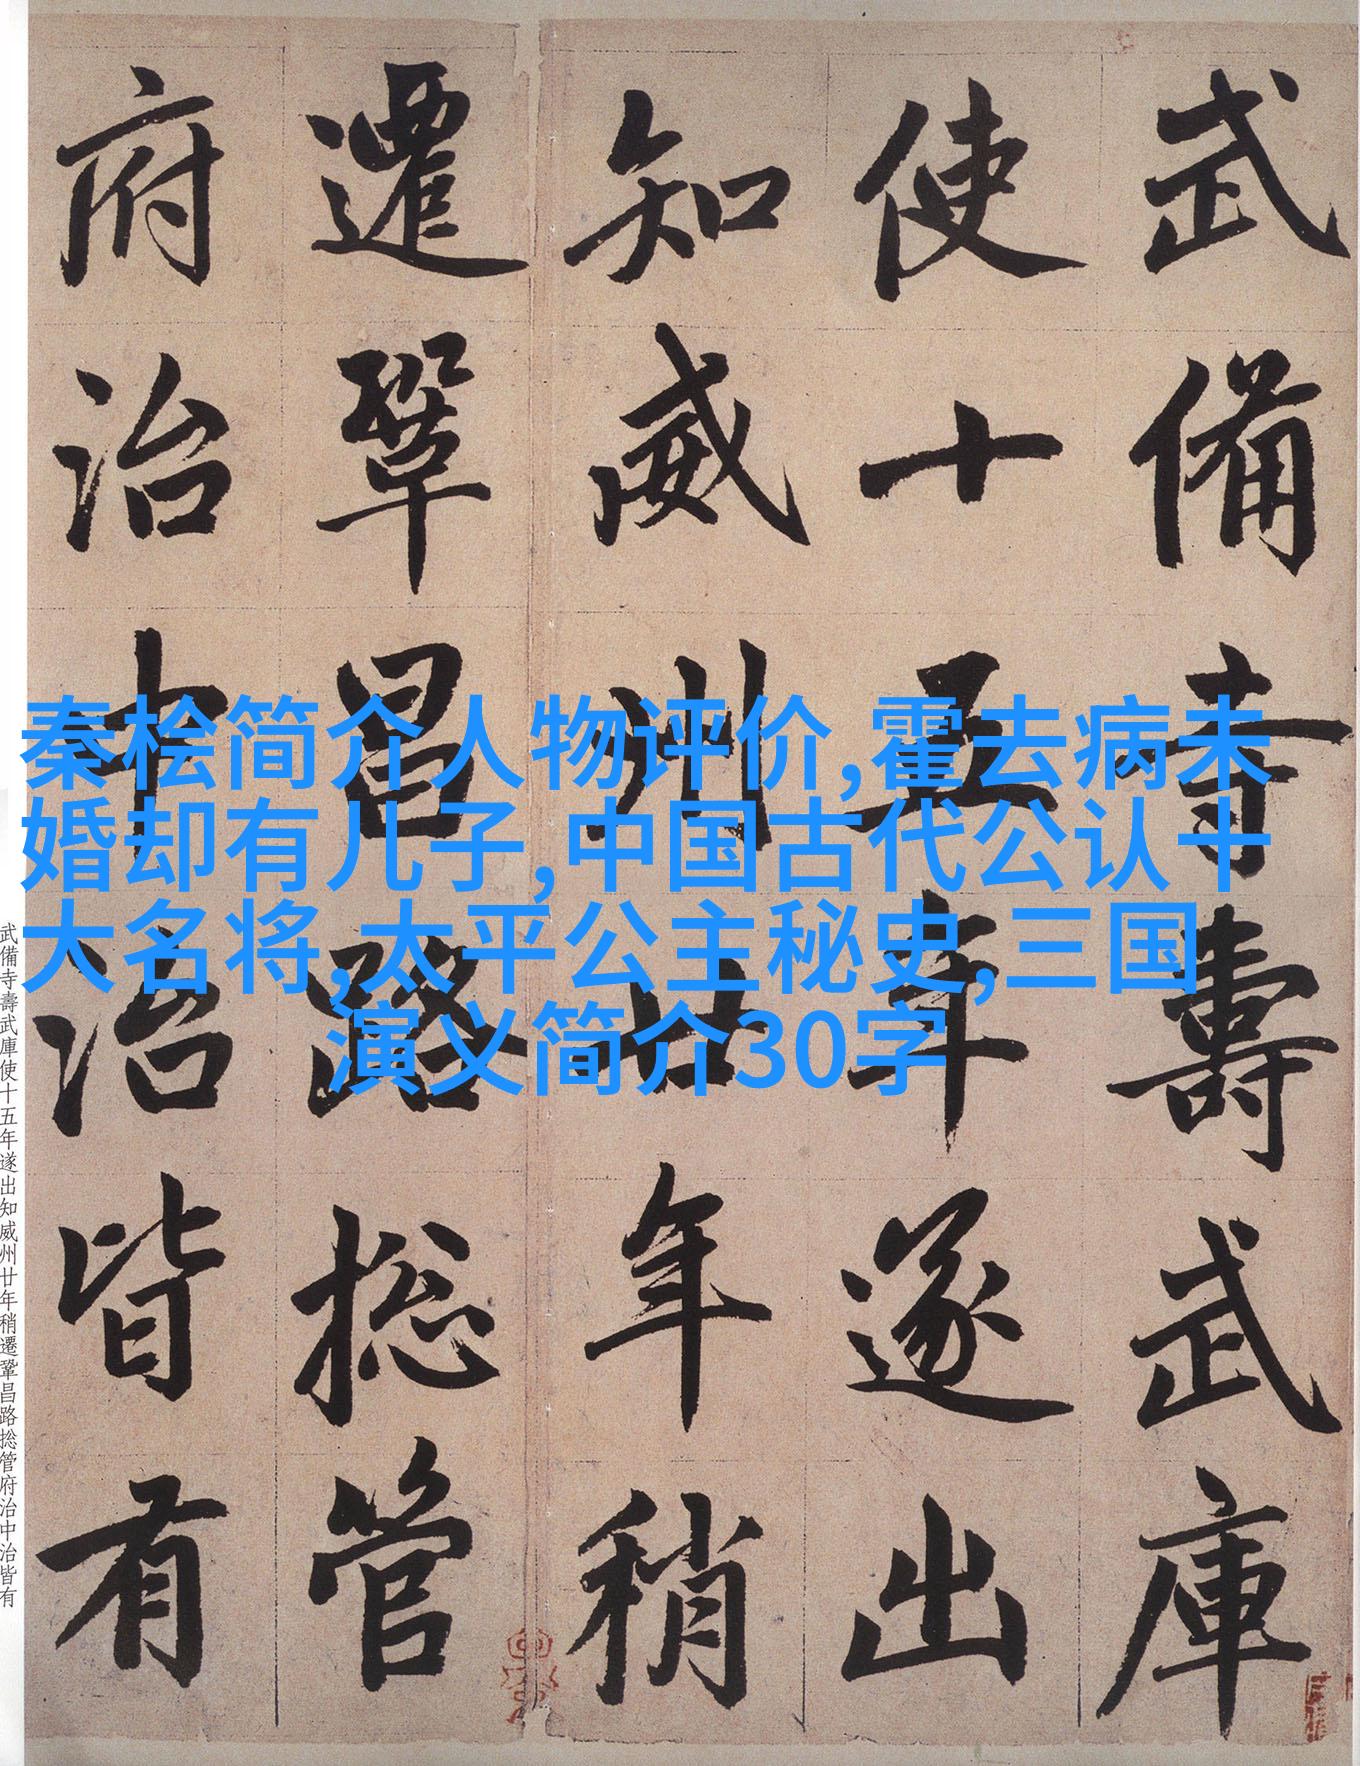 武備寺壽武庫
使十五年遂出
知威州廿年稍
遷鞏昌路捴管
府治中治皆有
秦桧简介人物评价,霍去病未
婚却有儿子,中国古代公认十
大名将,太平公主秘史,三国
演义简介30字
武備寺壽武庫使十五年遂出知威州廿年稍遷鞏昌路捴管府治中治皆有